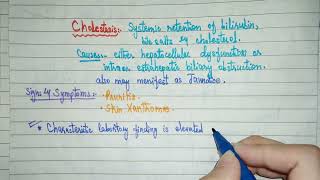 Cholestasis:- Systemic retention of bilirubin,
bile salts & cholesterol.
Causes:- either hepatocellular dysfunction or
intra or extrahepatic biliary obstruction.
also may manifest as Jaundice.
Signs & Symptoms:- • Pruritis
• Skin Xanthomas
* Characteristic laboratory finding is elevated